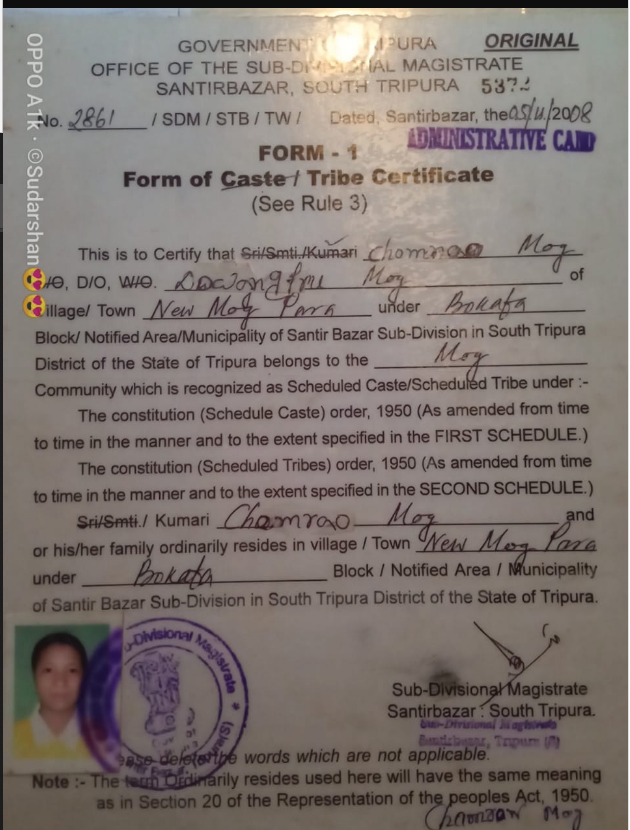 GOVERNMENT TRIPURA ORIGINAL
OFFICE OF THE SUB-DIVISIONAL MAGISTRATE
SANTIRBAZAR, SOUTH TRIPURA
No. 2861 / SDM / STB / TW / Dated, Santirbazar, the 05/11/2008
ADMINISTRATIVE CARD
FORM - 1
Form of Caste / Tribe Certificate
(See Rule 3)
This is to Certify that Sri/Smti./Kumari Mog
D/O, W/O. Mog of
Village/ Town New Mog Para under Bokafa
Block/ Notified Area/Municipality of Santir Bazar Sub-Division in South Tripura
District of the State of Tripura belongs to the Mog
Community which is recognized as Scheduled Caste/Scheduled Tribe under :-
The constitution (Schedule Caste) order, 1950 (As amended from time
to time in the manner and to the extent specified in the FIRST SCHEDULE.)
The constitution (Scheduled Tribes) order, 1950 (As amended from time
to time in the manner and to the extent specified in the SECOND SCHEDULE.)
Sri/Smti./ Kumari Chamrao Mog and
or his/her family ordinarily resides in village / Town New Mog Para
under Bokafa Block / Notified Area / Municipality
of Santir Bazar Sub-Division in South Tripura District of the State of Tripura.
Sub-Divisional Magistrate
Sub-Divisional Magistrate
Santirbazar : South Tripura.
Sub-Divisional Magistrate
Santirbazar, Tripura (S)
delete the words which are not applicable.
Note :- The term Ordinarily resides used here will have the same meaning
as in Section 20 of the Representation of the peoples Act, 1950.
Mog
OPPO A1k · ©Sudarshan😍😍